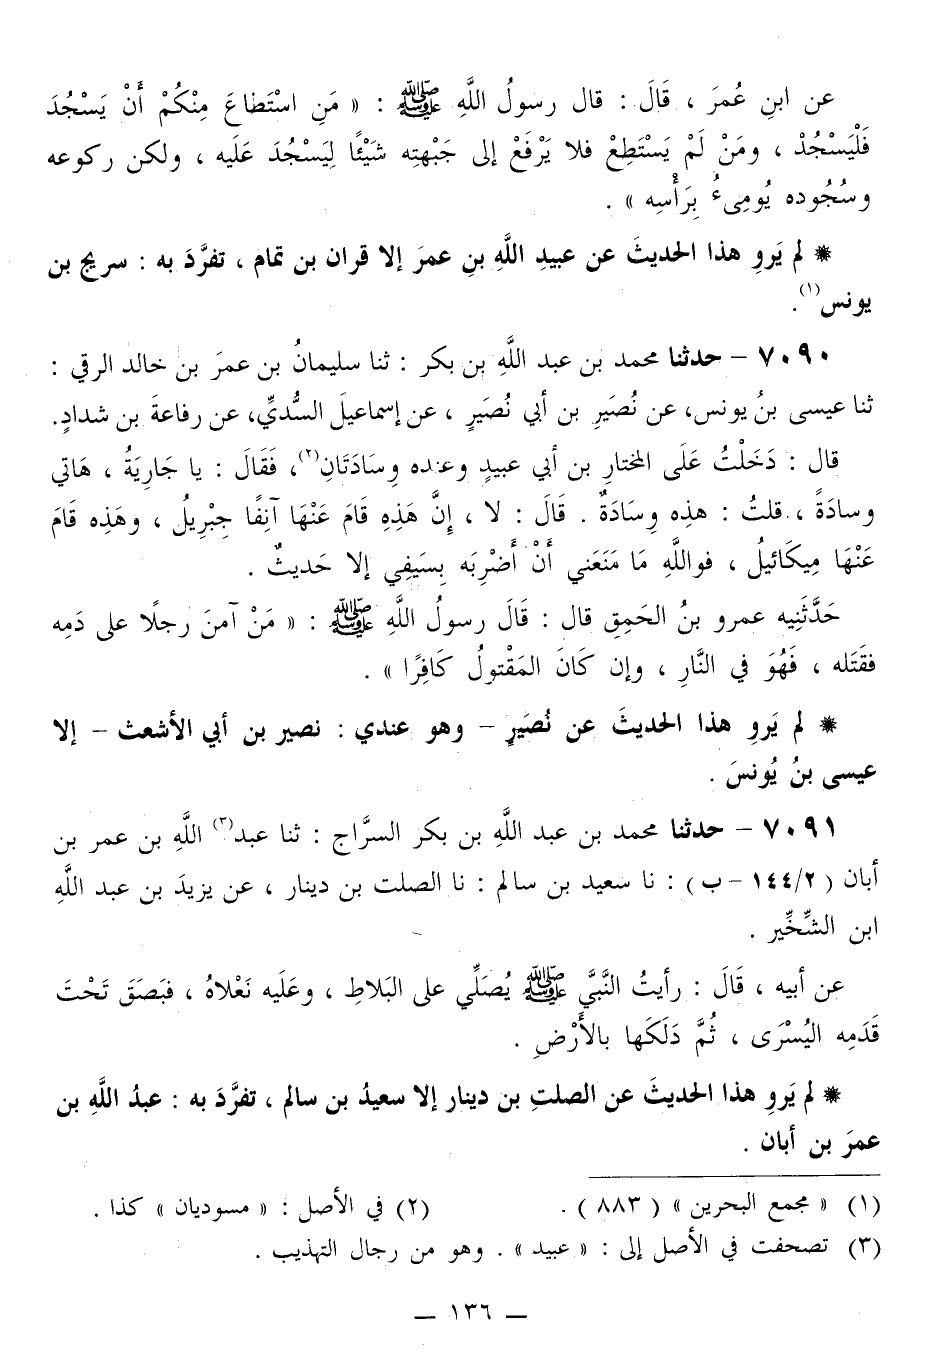 عن ابنِ عُمرَ ، قَالَ : قال رسولُ اللَّهِ ﷺ : « مَنِ اسْتَطاعَ مِنْكُمْ أَنْ يَسْجُدَ
فَلْيَسْجُدْ ، ومَنْ لَمْ يَسْتَطِعْ فلا يَرْفَعْ إلى جَبْهتِه شَيْئًا لِيَسْجُدَ عَلَيه ، ولكن ركوعه
وسُجُوده يُومِىءُ بِرَأْسِه » .
* لم يَروِ هذا الحديثَ عن عبيدِ اللَّهِ بنِ عمرَ إلا قران بن تمام ، تفرَّدَ به : سريج بن
يونس(١).
٧٠٩٠ - حدثنا محمد بن عبد اللَّهِ بن بكر : ثنا سليمانُ بن عمرَ بن خالد الرقي :
ثنا عيسى بنُ يونس، عن نُصَيرِ بن أبي نُصَيرٍ ، عن إسماعيلَ السُّديِّ، عن رفاعةَ بن شدادٍ.
قال : دَخَلْتُ عَلَى المختارِ بن أبي عبيدٍ وعنده وِسَادَتَانِ(٢)، فَقَالَ : يا جَارِيَةُ ، هَاتي
وسادَةً ، قلتُ : هذِه وِسَادَةٌ . قَالَ : لا ، إِنَّ هَذِهِ قَامَ عَنْهَا آنِفًا جِبْرِيلُ ، وهَذِه قَامَ
عَنْهَا مِيكَائيلُ ، فواللَّهِ مَا مَنَعَني أَنْ أَضْرِبَه بِسَيفِي إلا حَديثٌ .
حَدَّثَنِيه عمرو بنُ الحَمِقِ قال : قَالَ رسولُ اللَّهِ ﷺ : « مَنْ آمنَ رجلًا على دَمِه
فقَتَله ، فَهُوَ في النَّارِ ، وإن كَانَ المَقْتولُ كَافِرًا » .
* لم يَروِ هذا الحديثَ عن نُصَيرٍ - وهو عندي : نصير بن أبي الأشعث - إلا
عيسى بنُ يُونسَ .
٧٠٩١ - حدثنا محمد بن عبد اللَّهِ بن بكر السرَّاج : ثنا عبد(٣) اللَّهِ بن عمر بن
أبان ( ١٤٤/٢ - ب ) : نا سعيد بن سالم : نا الصلت بن دينار ، عن يزيدَ بن عبد اللَّهِ
ابن الشِّخِّير .
عن أبيه ، قَالَ : رأيتُ النَّبيَّ ﷺ يُصَلِّي على البَلاطِ ، وعَلَيه نَعْلاهُ ، فبَصَقَ تَحْتَ
قَدَمِه اليُسْرَى ، ثُمَّ دَلَكَها بالأَرْضِ .
* لم يَروِ هذا الحديثَ عن الصلتِ بن دينار إلا سعيدُ بن سالم ، تفرَّدَ به : عبدُ اللَّهِ بن
عمرَ بن أبان .
(١) « مجمع البحرين » ( ٨٨٣ ) . (٢) في الأصل : « مسوديان » كذا .
(٣) تصحفت في الأصل إلى : « عبيد » . وهو من رجال التهذيب .
— ١٣٦ —